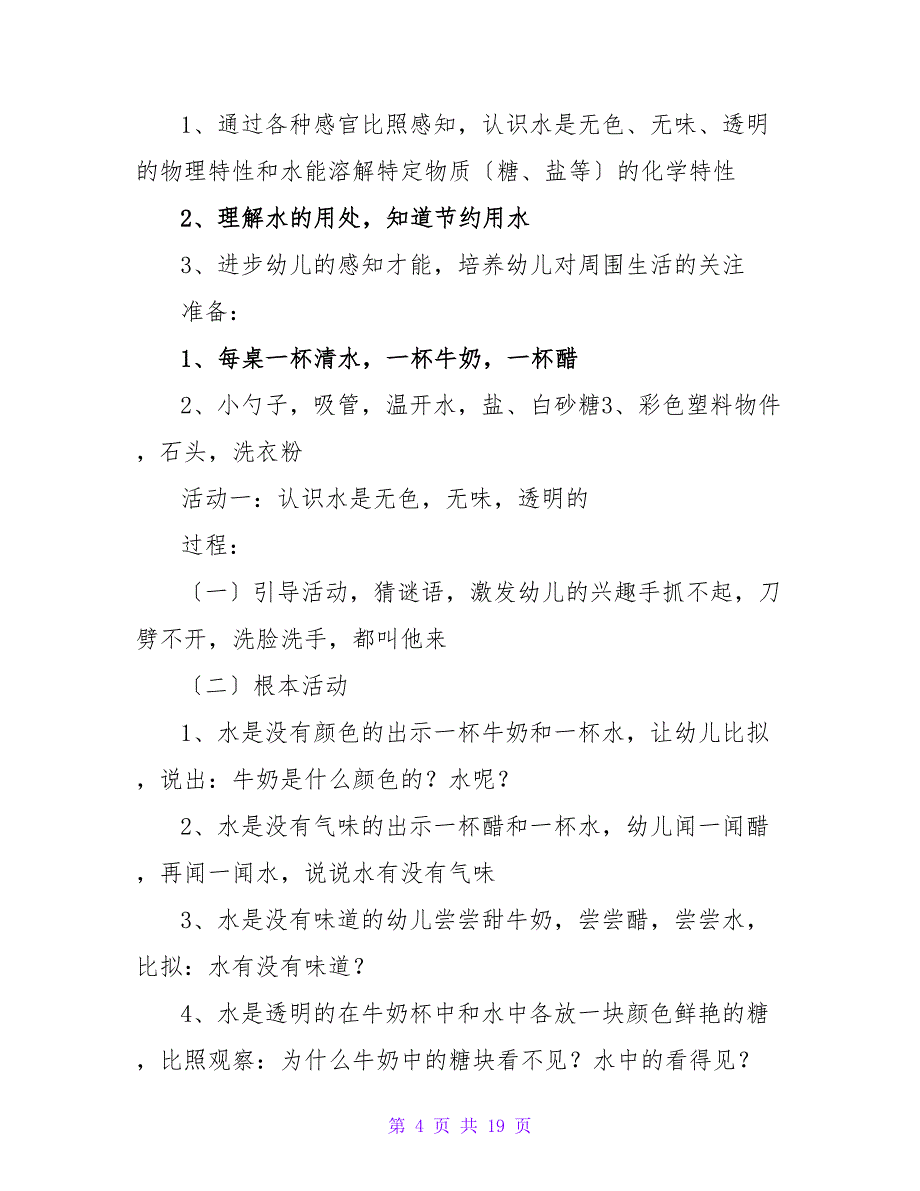 1、通过各种感官比照感知，认识水是无色、无味、透明
的物理特性和水能溶解特定物质〔糖、盐等〕的化学特性
2、理解水的用处，知道节约用水
3、进步幼儿的感知才能，培养幼儿对周围生活的关注
准备：
1、每桌一杯清水，一杯牛奶，一杯醋
2、小勺子，吸管，温开水，盐、白砂糖3、彩色塑料物件
，石头，洗衣粉
活动一：认识水是无色，无味，透明的
过程：
〔一〕引导活动，猜谜语，激发幼儿的兴趣手抓不起，刀
劈不开，洗脸洗手，都叫他来
〔二〕根本活动
1、水是没有颜色的出示一杯牛奶和一杯水，让幼儿比拟
，说出：牛奶是什么颜色的？水呢？
2、水是没有气味的出示一杯醋和一杯水，幼儿闻一闻醋
，再闻一闻水，说说水有没有气味
3、水是没有味道的幼儿尝尝甜牛奶，尝尝醋，尝尝水，
比拟：水有没有味道？
4、水是透明的在牛奶杯中和水中各放一块颜色鲜艳的糖
，比照观察：为什么牛奶中的糖块看不见？水中的看得见？
第 4 页 共 19 页